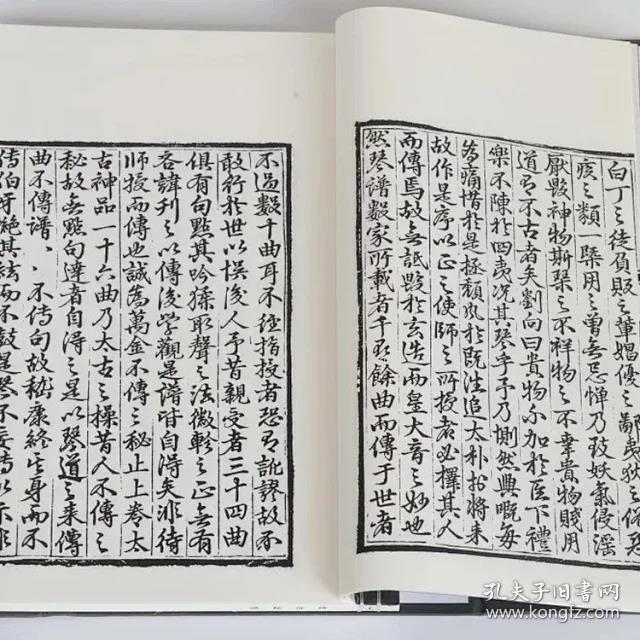 白丁之徒負販之輩娼優之鄙夷狄之俗惡
疾之類一槩用之曾無忌憚乃致妖氣侵淫
厭斁神物斯琹之不祥物之不幸貴物賤用
道有不古者矣劉向曰貴物不加於臣下禮
樂不陳於四夷况其琴乎予乃惻然興嘅每
為痛惜於是拯頹風於既往追太朴於將来
故作是序以正之使師之所授者必擇其人
而傳焉故無詆毀於玄造而皇大音之妙也
然琴譜數家所載者千有餘曲而傳于世者
不過數十曲耳不經指授者恐有訛謬故不
敢行於世以悞後人予昔親受者三十四曲
俱有句點其吟猱取聲之法徽軫之正無有
吝諱刊之以傳後學觀是譜皆自得矣非待
師授而傳也誠為萬金不傳之秘止上卷太
古神品一十六曲乃太古之操昔人不傳之
秘故無點句達者自得之是以琴道之来傳
曲不傳譜、、不傳句故嵇康終其身而不
傳伯牙絕其絃而不鼓是琴不妄傳以示非
孔夫子旧书网
www.kongfz.com